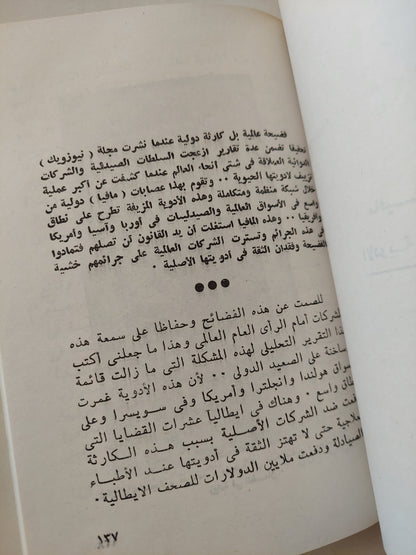 فضيحة عالمية بل كارثة دولية عندما نشرت مجلة ( نيوزويك )
تحقيقا تضمن عدة تقارير ازعجت السلطات الصيدلية والشركات
الدوائية العملاقة فى شتى انحاء العالم عندما كشفت عن أكبر عملية
تزييف لادويتها الحيوية . . وتقوم بهذا عصابات ( مافيا ) دولية من
خلال شبكة منظمة ومتكاملة وهذه الأدوية المزيفة تطرح على نطاق
واسع فى الأسواق العالمية والصيدليات فى أوربا وآسيا وأمريكا
وأفريقيا . . وهذه المافيا استغلت أن يد القانون لن تصلهم فتمادوا
فى هذه الجرائم وتسترت الشركات العالمية على جرائمهم خشية
الفضيحة وفقدان الثقة فى أدويتها الأصلية .
●●●
للصمت عن هذه الفضائح وحفاظا على سمعة هذه
الشركات أمام الرأى العام العالمى وهذا ما جعلنى أكتب
هذا التقرير التحليلى لهذه المشكلة التى ما زالت قائمة
ساخنة على الصعيد الدولى . . لأن هذه الأدوية غمرت
أسواق هولندا وانجلترا وأمريكا وفى سويسرا وعلى
نطاق واسع . وهناك فى ايطاليا عشرات القضايا التى
رفعت ضد الشركات الأصلية بسبب هذه الكارثة
العلاجية حتى لا تهتز الثقة فى أدويتها عند الأطباء
والصيادلة ودفعت ملايين الدولارات للصحف الايطالية .
١٣٧